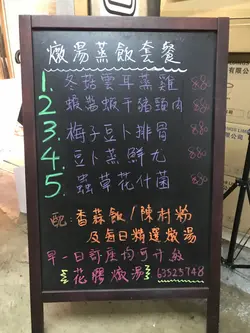 燉湯蒸飯套餐
1. 冬菇雲耳蒸雞 $80
2. 蝦醬蝦干豬頸肉 $80
3. 梅子豆卜排骨 $80
4. 豆卜蒸鮮丸 $80
5. 蟲草花什菌 $80
配: 香蒜飯/陳村粉
及每日精選燉湯
早一日訂座均可升級
花膠燉湯 63523748